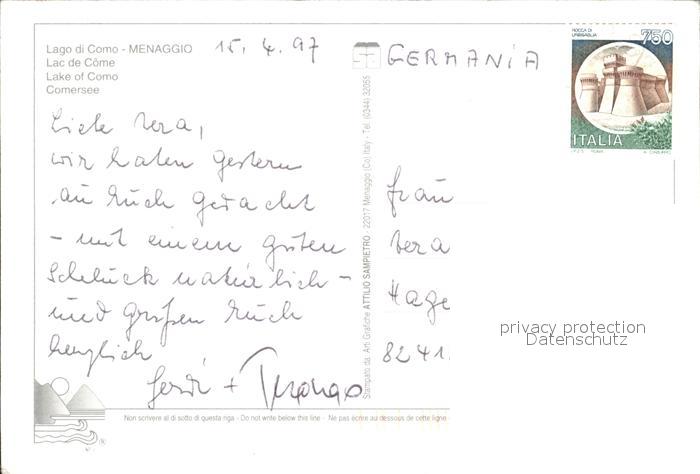 Lago di Como - MENAGGIO
Lac de Côme
Lake of Como
Comersee
15. 4. 97
Liebe Vera,
wir haben gestern
an Euch gedacht
- mit einem guten
Schluck natürlich -
und grüßen Euch
herzlich
Gerdi +
Stampato da: Arti Grafiche ATTILIO SAMPIETRO - 22017 Menaggio (Co) Italy - Tel. (0344) 32055
GERMANIA
ROCCA DI URBISAGLIA
750
ITALIA
Frau
Vera
Hage
8241
privacy protection
Datenschutz
Non scrivere al di sotto di questa riga - Do not write below this line - Ne pas écrire au dessous de cette ligne